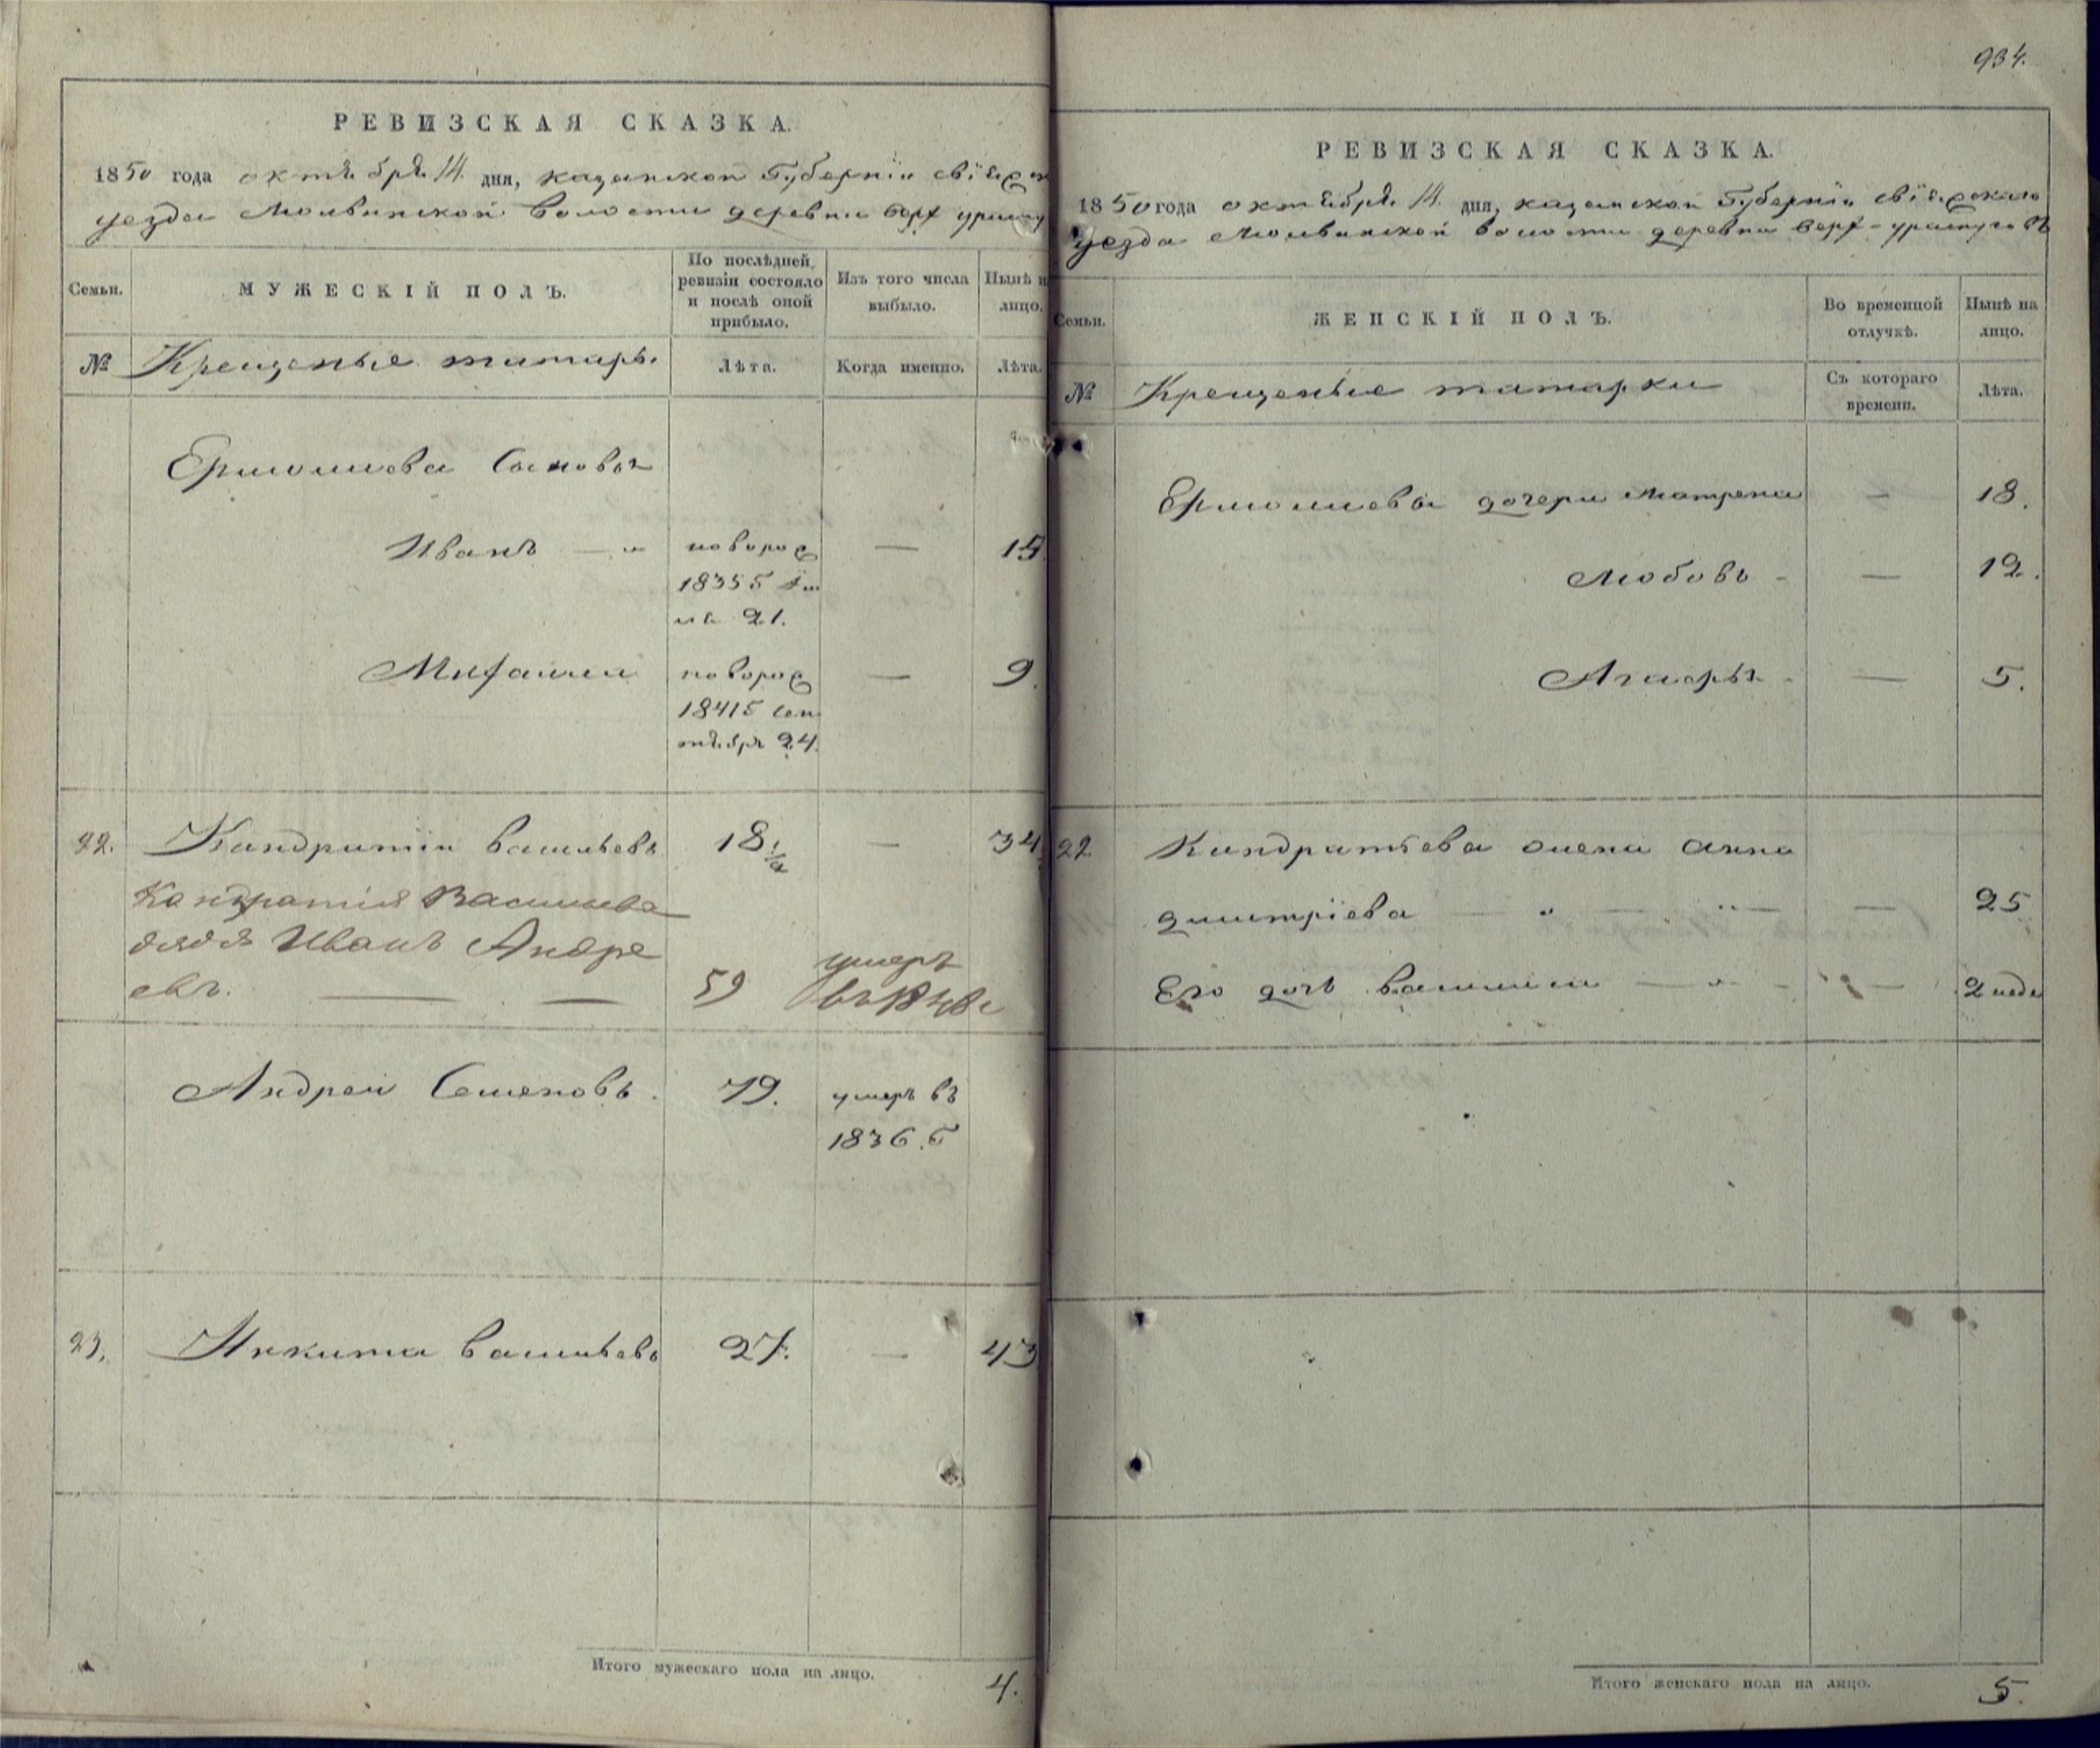 РЕВИЗСКАЯ СКАЗКА.
1850 года октября 14 дня, казанской Губернїи свїяжск
уезда Мольвинской волости деревни верх ураспу
Семьи.
МУЖЕСКІЙ ПОЛЪ.
По послѣдней
ревизіи состояло
и послѣ оной
прибыло.
Изъ того числа
выбыло.
Нынѣ н
лицо.
№
Крещеные татары.
Лѣта.
Когда именно.
Лѣта.
Ермолаева Сыновья
Иванъ
новорож
1835 Г
21.
—
15
Михаила
новорож
1841 Г Сен
тября 24.
—
9.
22.
Кандратіи Васильевъ
18 1/2
—
34
Кандратія Васильева
дядя Иванъ Андре
евъ.
59
умеръ
въ
Андреи Семеновъ.
79.
умеръ въ
1836. Г
23.
Никита Васильевъ
27.
—
43
Итого мужескаго пола на лицо.
4.
934.
РЕВИЗСКАЯ СКАЗКА.
1850 года октября 14 дня, казанской Губернїи свїяжскаго
уезда Мольвинской волости деревни верх-
Семьи.
ЖЕНСКІЙ ПОЛЪ.
Во временной
отлучкѣ.
Нынѣ на
лицо.
№
Крещеные татарки
Съ котораго
времени.
Лѣта.
Ермолаева дочери Матрена
—
18.
Любовь
—
12.
—
5.
22
Кандратьева жена Анна
Дмитрїева
—
25
Его дочь
—
2 неде
Итого женскаго пола на лицо.
5.